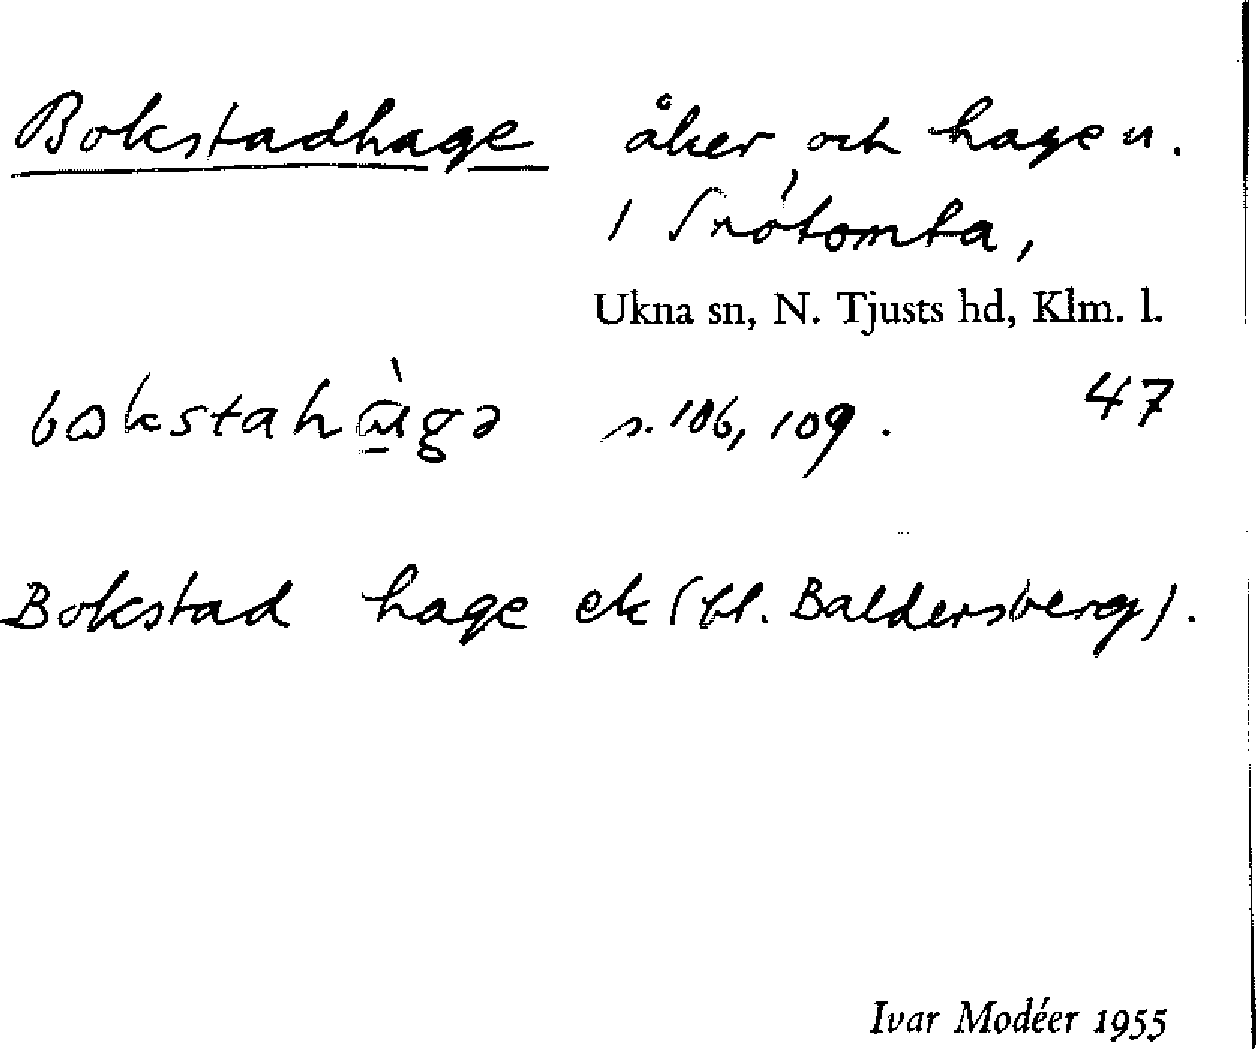 Bokstadhage åker och hage u.
1 Snötomta,
Ukna sn, N. Tjusts hd, Klm. l.
s. 106, 109. 47
Bokstad hage ek (bl. Baldersberg).
Ivar Modéer 1955